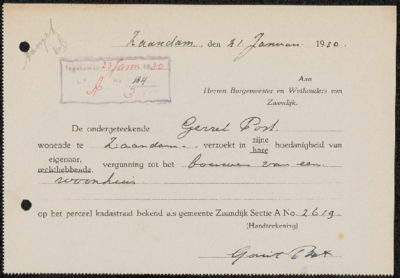 Zaandam, den 21 Januari 1930.
Ingekomen 23 Jan 1930
No. 134
A 3
Aan
Heeren Burgemeester en Wethouders van
Zaandijk.
De ondergeteekende Gerret Post
wonende te Zaandam verzoekt in zijne hare hoedanigheid van
eigenaar,
rechthebbende, vergunning tot het bouwen van een
woonhuis
op het perceel kadastraal bekend als gemeente Zaandijk Sectie A No. 2619
(Handteekening)
Gerrit Post